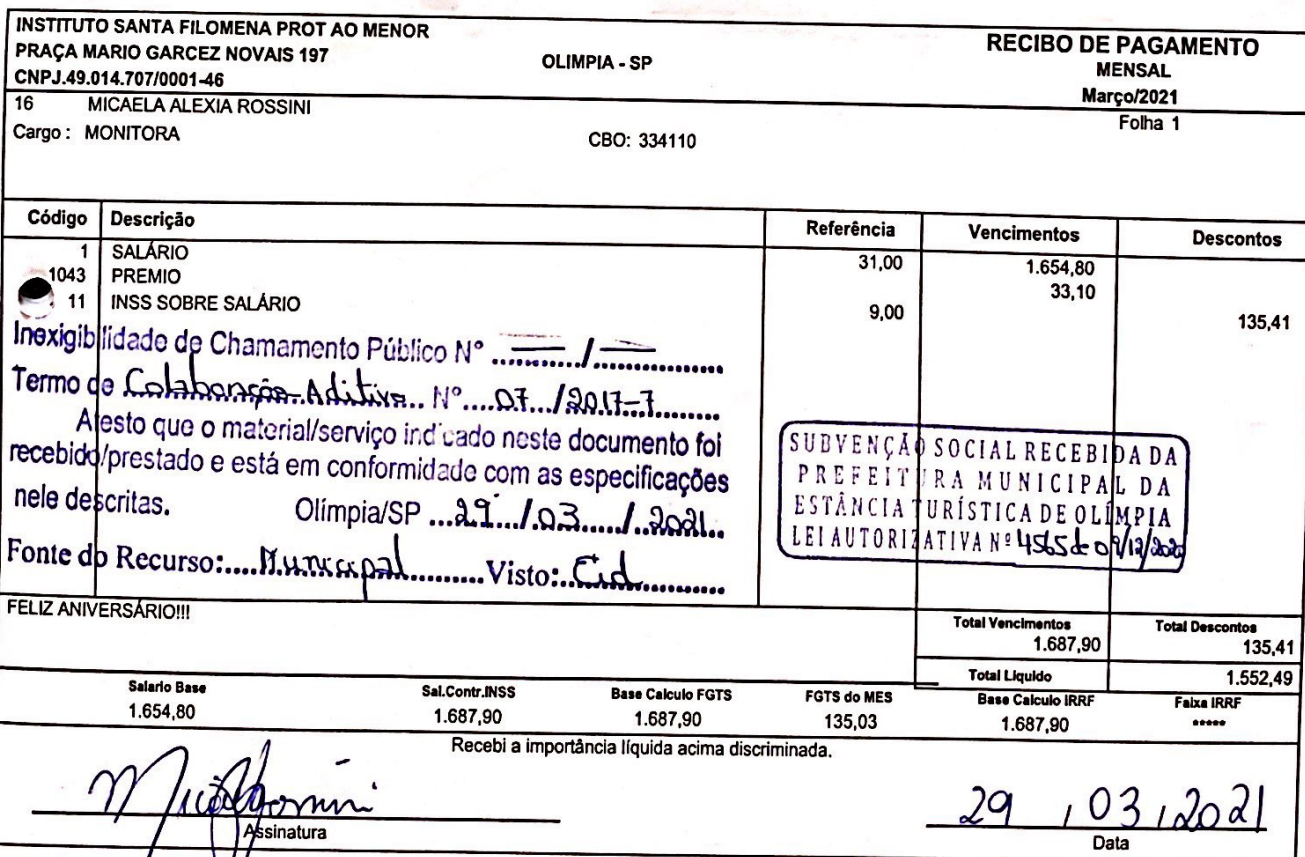 INSTITUTO SANTA FILOMENA PROT AO MENOR
PRAÇA MARIO GARCEZ NOVAIS 197
CNPJ.49.014.707/0001-46
OLIMPIA - SP
RECIBO DE PAGAMENTO
MENSAL
Março/2021
Folha 1
16 MICAELA ALEXIA ROSSINI
Cargo : MONITORA
CBO: 334110
Código Descrição Referência Vencimentos Descontos
1 SALÁRIO 31,00 1.654,80
1043 PREMIO 33,10
11 INSS SOBRE SALÁRIO 9,00 135,41
Inexigibilidade de Chamamento Público Nº ........... / ................
Termo de Colaboração Aditivo Nº 07 /2017-7
Atesto que o material/serviço indicado neste documento foi
recebido/prestado e está em conformidade com as especificações
nele descritas. Olímpia/SP 29 / 03 / 2021
Fonte do Recurso: Municipal Visto: Cid
SUBVENÇÃO SOCIAL RECEBIDA DA
PREFEITURA MUNICIPAL DA
ESTÂNCIA TURÍSTICA DE OLÍMPIA
LEI AUTORIZATIVA Nº 4565 de 09/12/2020
FELIZ ANIVERSÁRIO!!!
Total Vencimentos Total Descontos
1.687,90 135,41
Total Liquido 1.552,49
Salario Base Sal.Contr.INSS Base Calculo FGTS FGTS do MES Base Calculo IRRF Faixa IRRF
1.654,80 1.687,90 1.687,90 135,03 1.687,90 *****
Recebi a importância líquida acima discriminada.
29 / 03 / 2021
Assinatura
Data